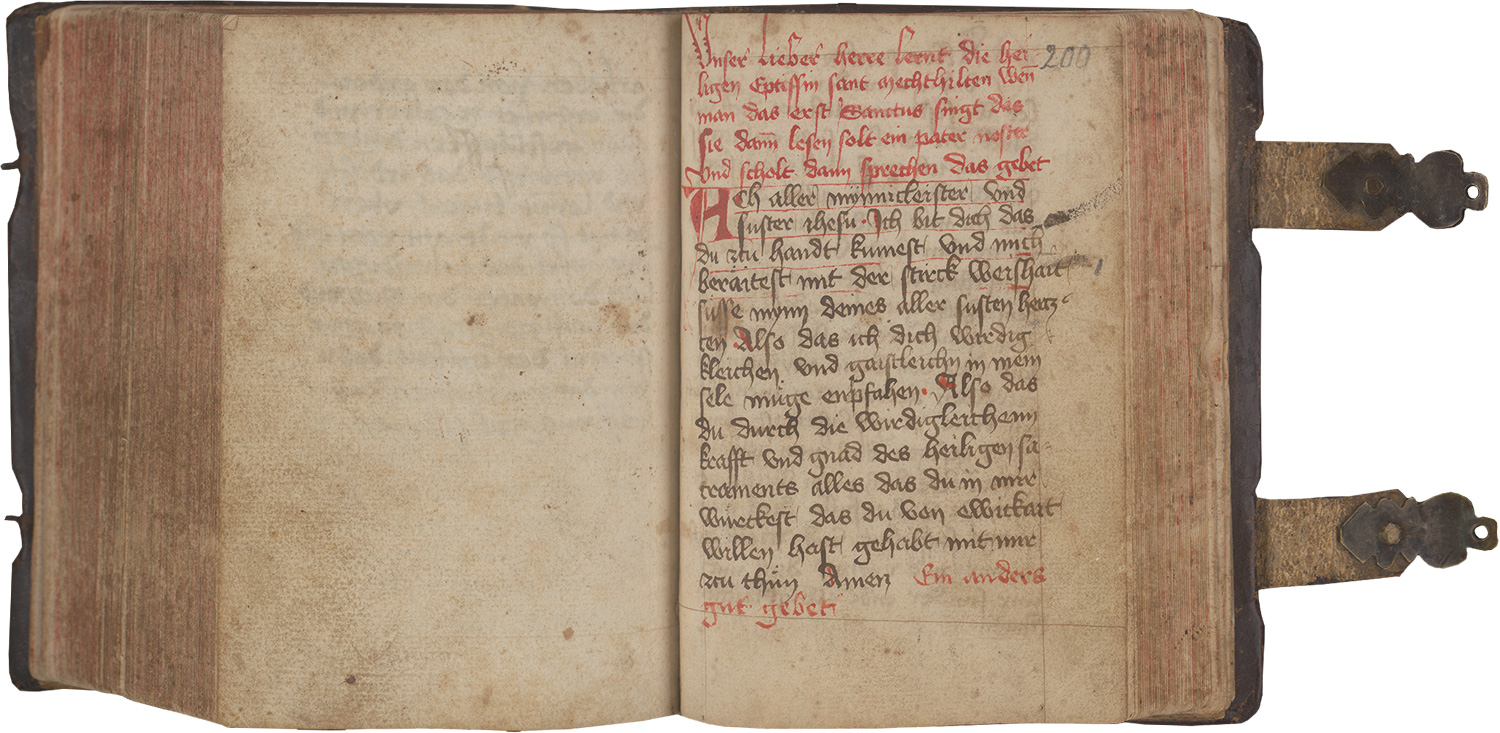 Unser lieber herre lernt die hei
200
ligen Eptissin sant Mechthilten wen̄
man das erst Sanctus singt das
sie dan̄ lesen solt ein pater noster
Vnd scholt dann sprechen das gebet
Ach aller mynnicleister vnd
suster ihesu · Ich bit dich das
du zcu handt kumest vnd mich
beraitest mit der sterck weishait
susse mynn deines aller susten hertz
cen Also das ich dich wirdig
kleichen vnd gaistleichn in mein
sele müge enpfahen · Also das
du durch die wirdigleichenn
krafft vnd gnad des heiligen sa-
craments alles das du in mir
würckest das du von ewickait
willen hast gehabt mit mir
zcu thün Amen Ein anders
gut gebet